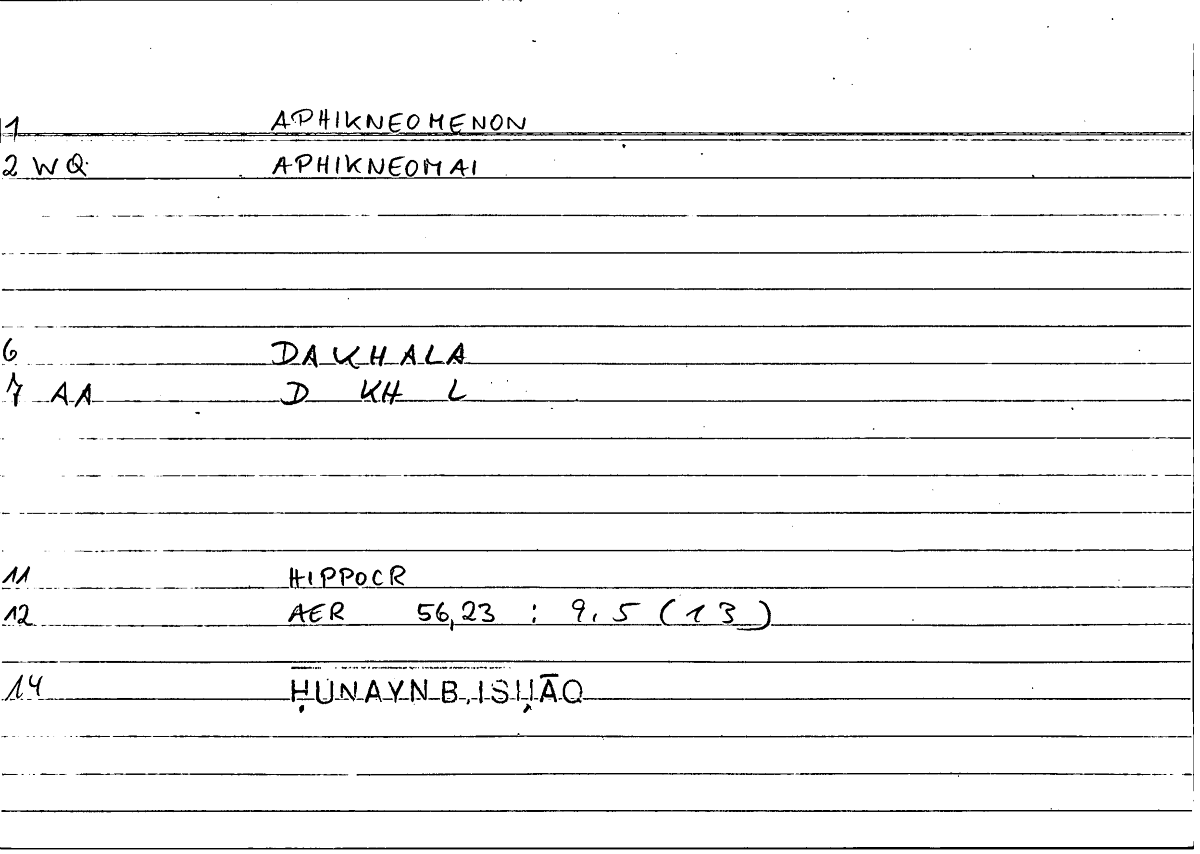 1 APHIKNEOMENON
2 WQ APHIKNEOMAI
6 DAKHALA
7 AA D KH L
11 HIPPOCR
12 AER 56,23 : 9,5 (13)
14 ḤUNAYN B. ISḤĀQ